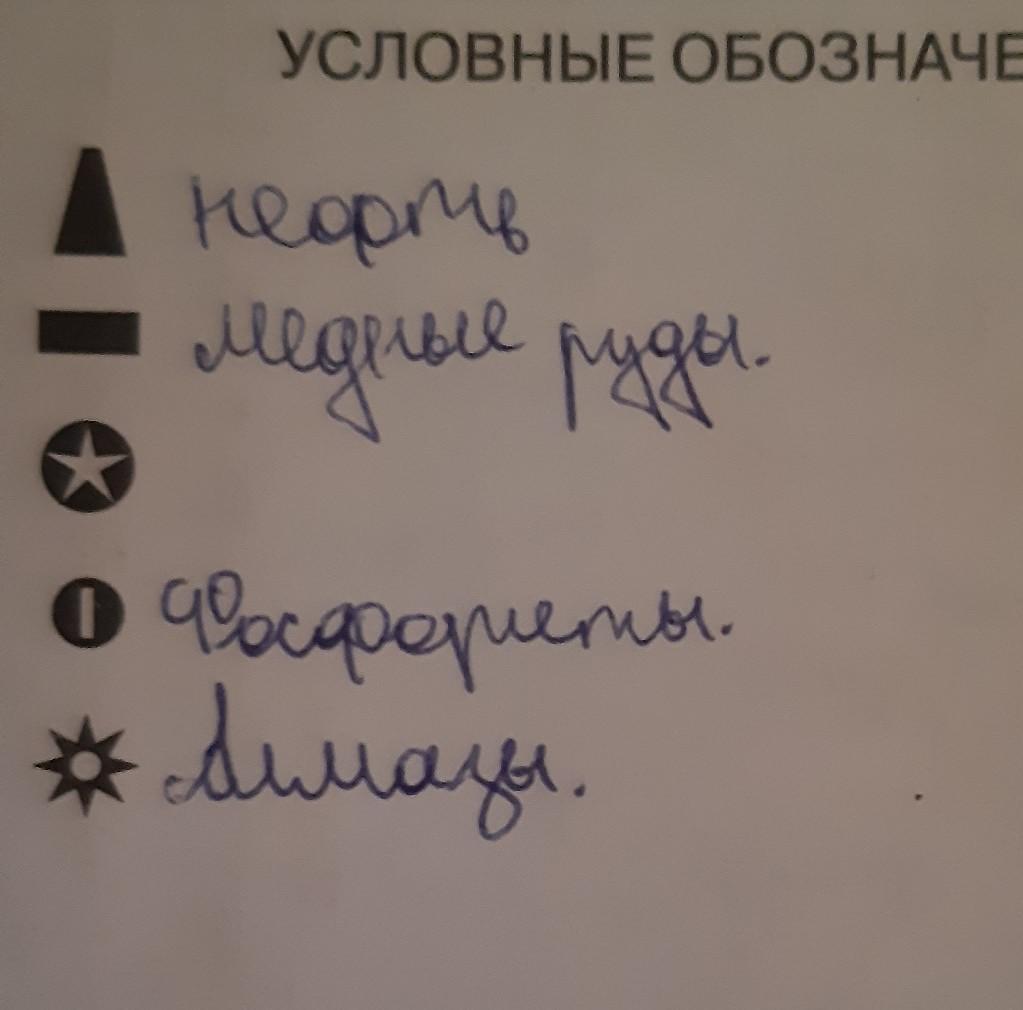 УСЛОВНЫЕ ОБОЗНАЧЕ
нефть
медные руды.
Фосфориты.
Алмазы.